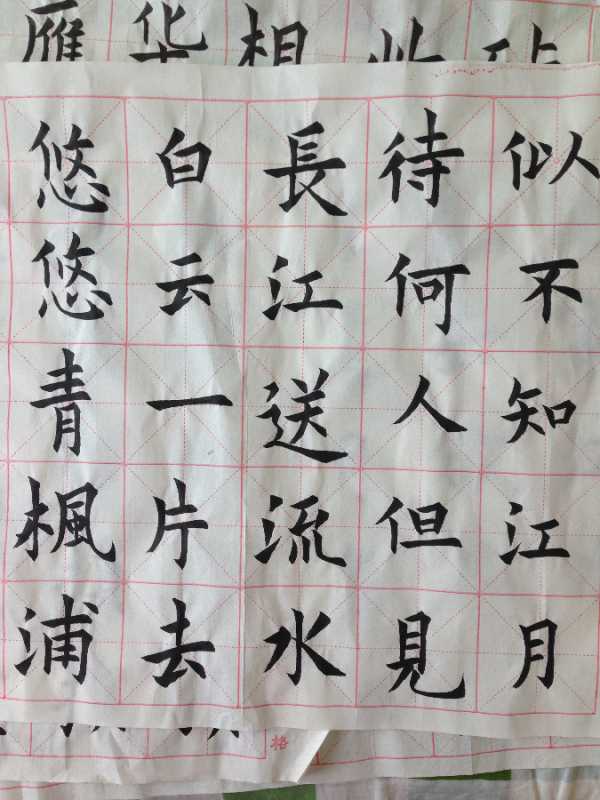 相
华
雁
似不知江月
待何人但見
長江送流水
白云一片去
悠悠青楓浦
格